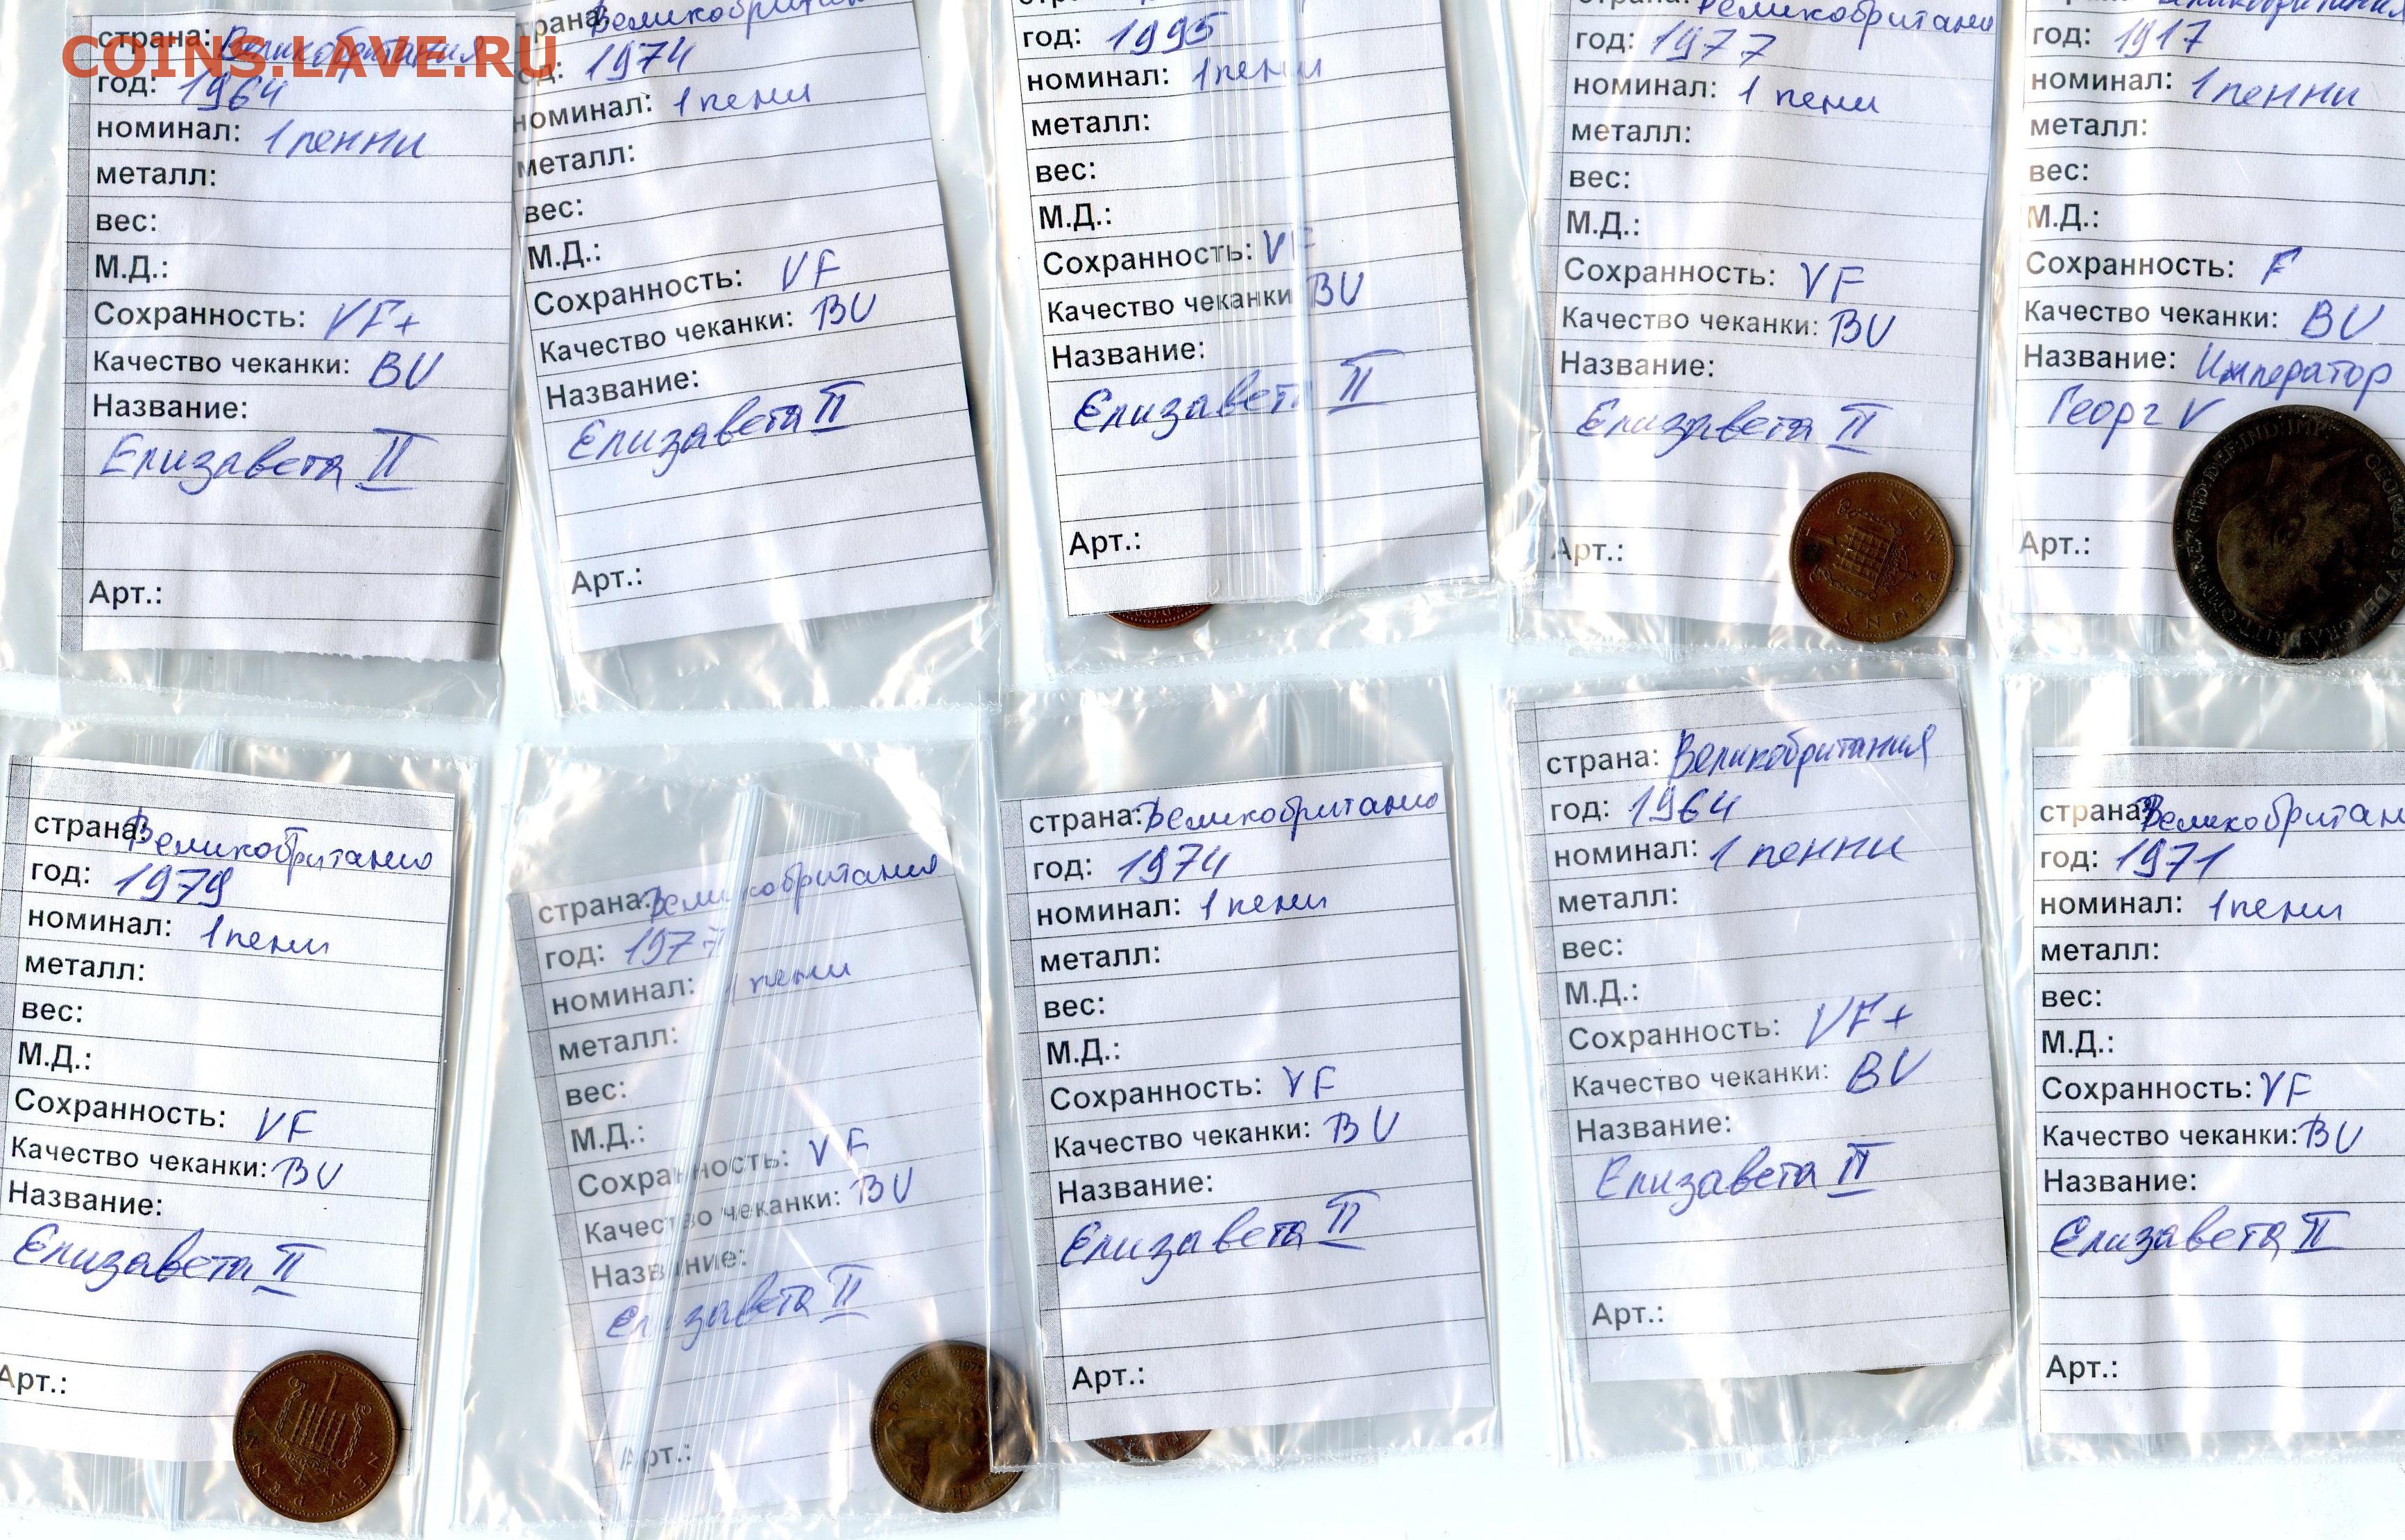 COINS.LAVE.RU
страна: Великобритания
год: 1964
номинал: 1 пенни
металл:
вес:
М.Д.:
Сохранность: VF+
Качество чеканки: BU
Название:
Елизавета II
Арт.:
1974
номинал: 1 пени
металл:
вес:
М.Д.:
Сохранность: VF
Качество чеканки: BU
Название:
Елизавета II
Арт.:
год: 1995
номинал: 1 пени
металл:
вес:
М.Д.:
Сохранность: VF
Качество чеканки BU
Название:
Елизавета II
Арт.:
год: 1977
номинал: 1 пени
металл:
вес:
М.Д.:
Сохранность: VF
Качество чеканки: BU
Название:
Елизавета II
Арт.:
NEW PENNY
1
год: 1917
номинал: 1 пенни
металл:
вес:
М.Д.:
Сохранность: F
Качество чеканки: BU
Название: Император
Георг V
Арт.:
страна: Великобритания
год: 1979
номинал: 1 пени
металл:
вес:
М.Д.:
Сохранность: VF
Качество чеканки: BU
Название:
Елизавета II
Арт.:
NEW PENNY
1
страна: Великобритания
год: 1977
номинал: 1 пени
металл:
вес:
М.Д.:
Сохранность: VF
Качество чеканки: BU
Название:
Елизавета II
Арт.:
страна: Великобритания
год: 1974
номинал: 1 пени
металл:
вес:
М.Д.:
Сохранность: VF
Качество чеканки: BU
Название:
Елизавета II
Арт.:
страна: Великобритания
год: 1964
номинал: 1 пенни
металл:
вес:
М.Д.:
Сохранность: VF+
Качество чеканки: BU
Название:
Елизавета II
Арт.:
страна: Великобритан
год: 1971
номинал: 1 пени
металл:
вес:
М.Д.:
Сохранность: VF
Качество чеканки: BU
Название:
Елизавета II
Арт.: